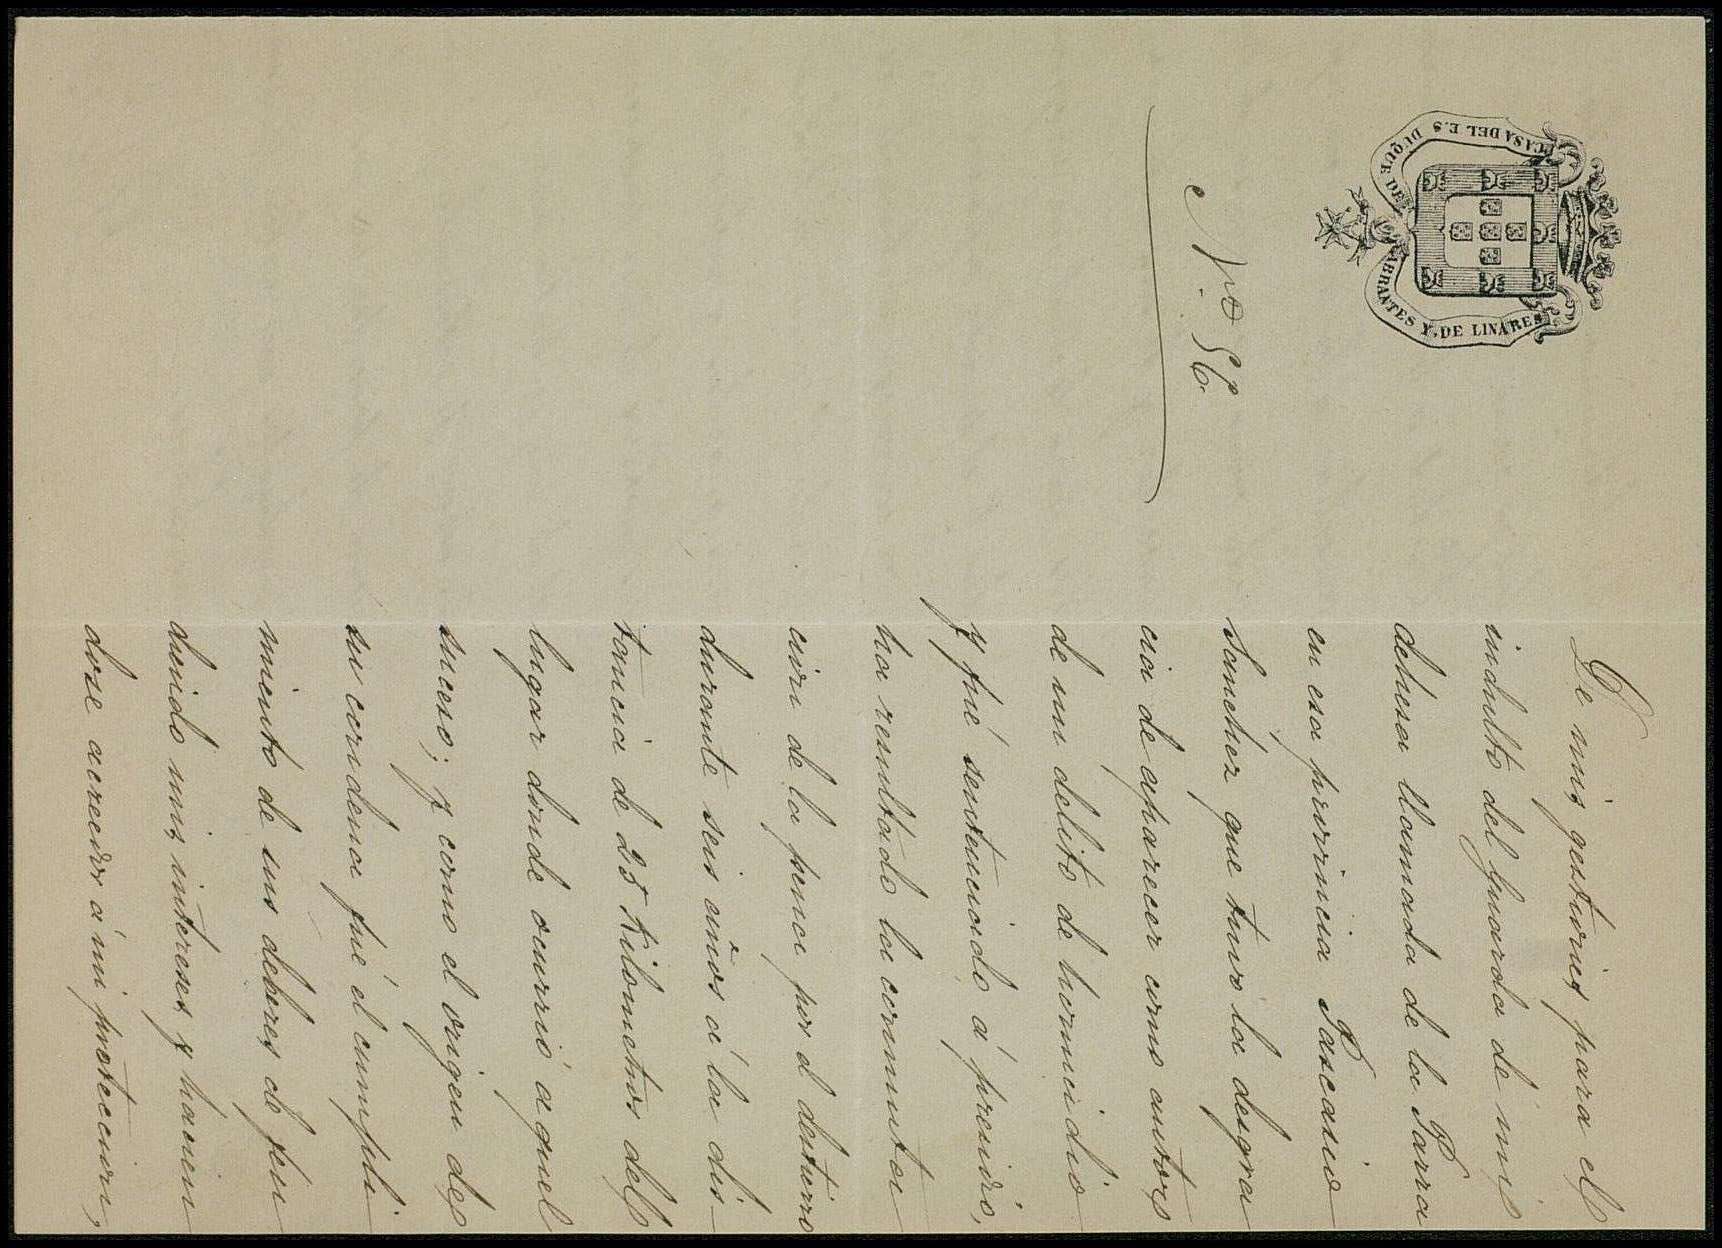 CASA DEL E.S. DUQUE DE ABRANTES Y DE LINARES
Nº 56
De mis gestiones para el
indulto del Guarda de mis
dehesa llamada de la Parra
en esa provincia Pascasio
Sanchez que tuvo la desgra
cia de aparecer como autor
de un delito de homicidio
y fué sentenciado á presidio,
ha resultado la conmuta
cion de la pena por el destierro
durante seis años á la dis-
tancia de 25 Kilometros del
lugar donde ocurrió aquel
suceso; y como el origen de
su condena fué el cumpli
miento de sus deberes defen
diendo mis intereses y hacien
dose acreedor á mi proteccion,